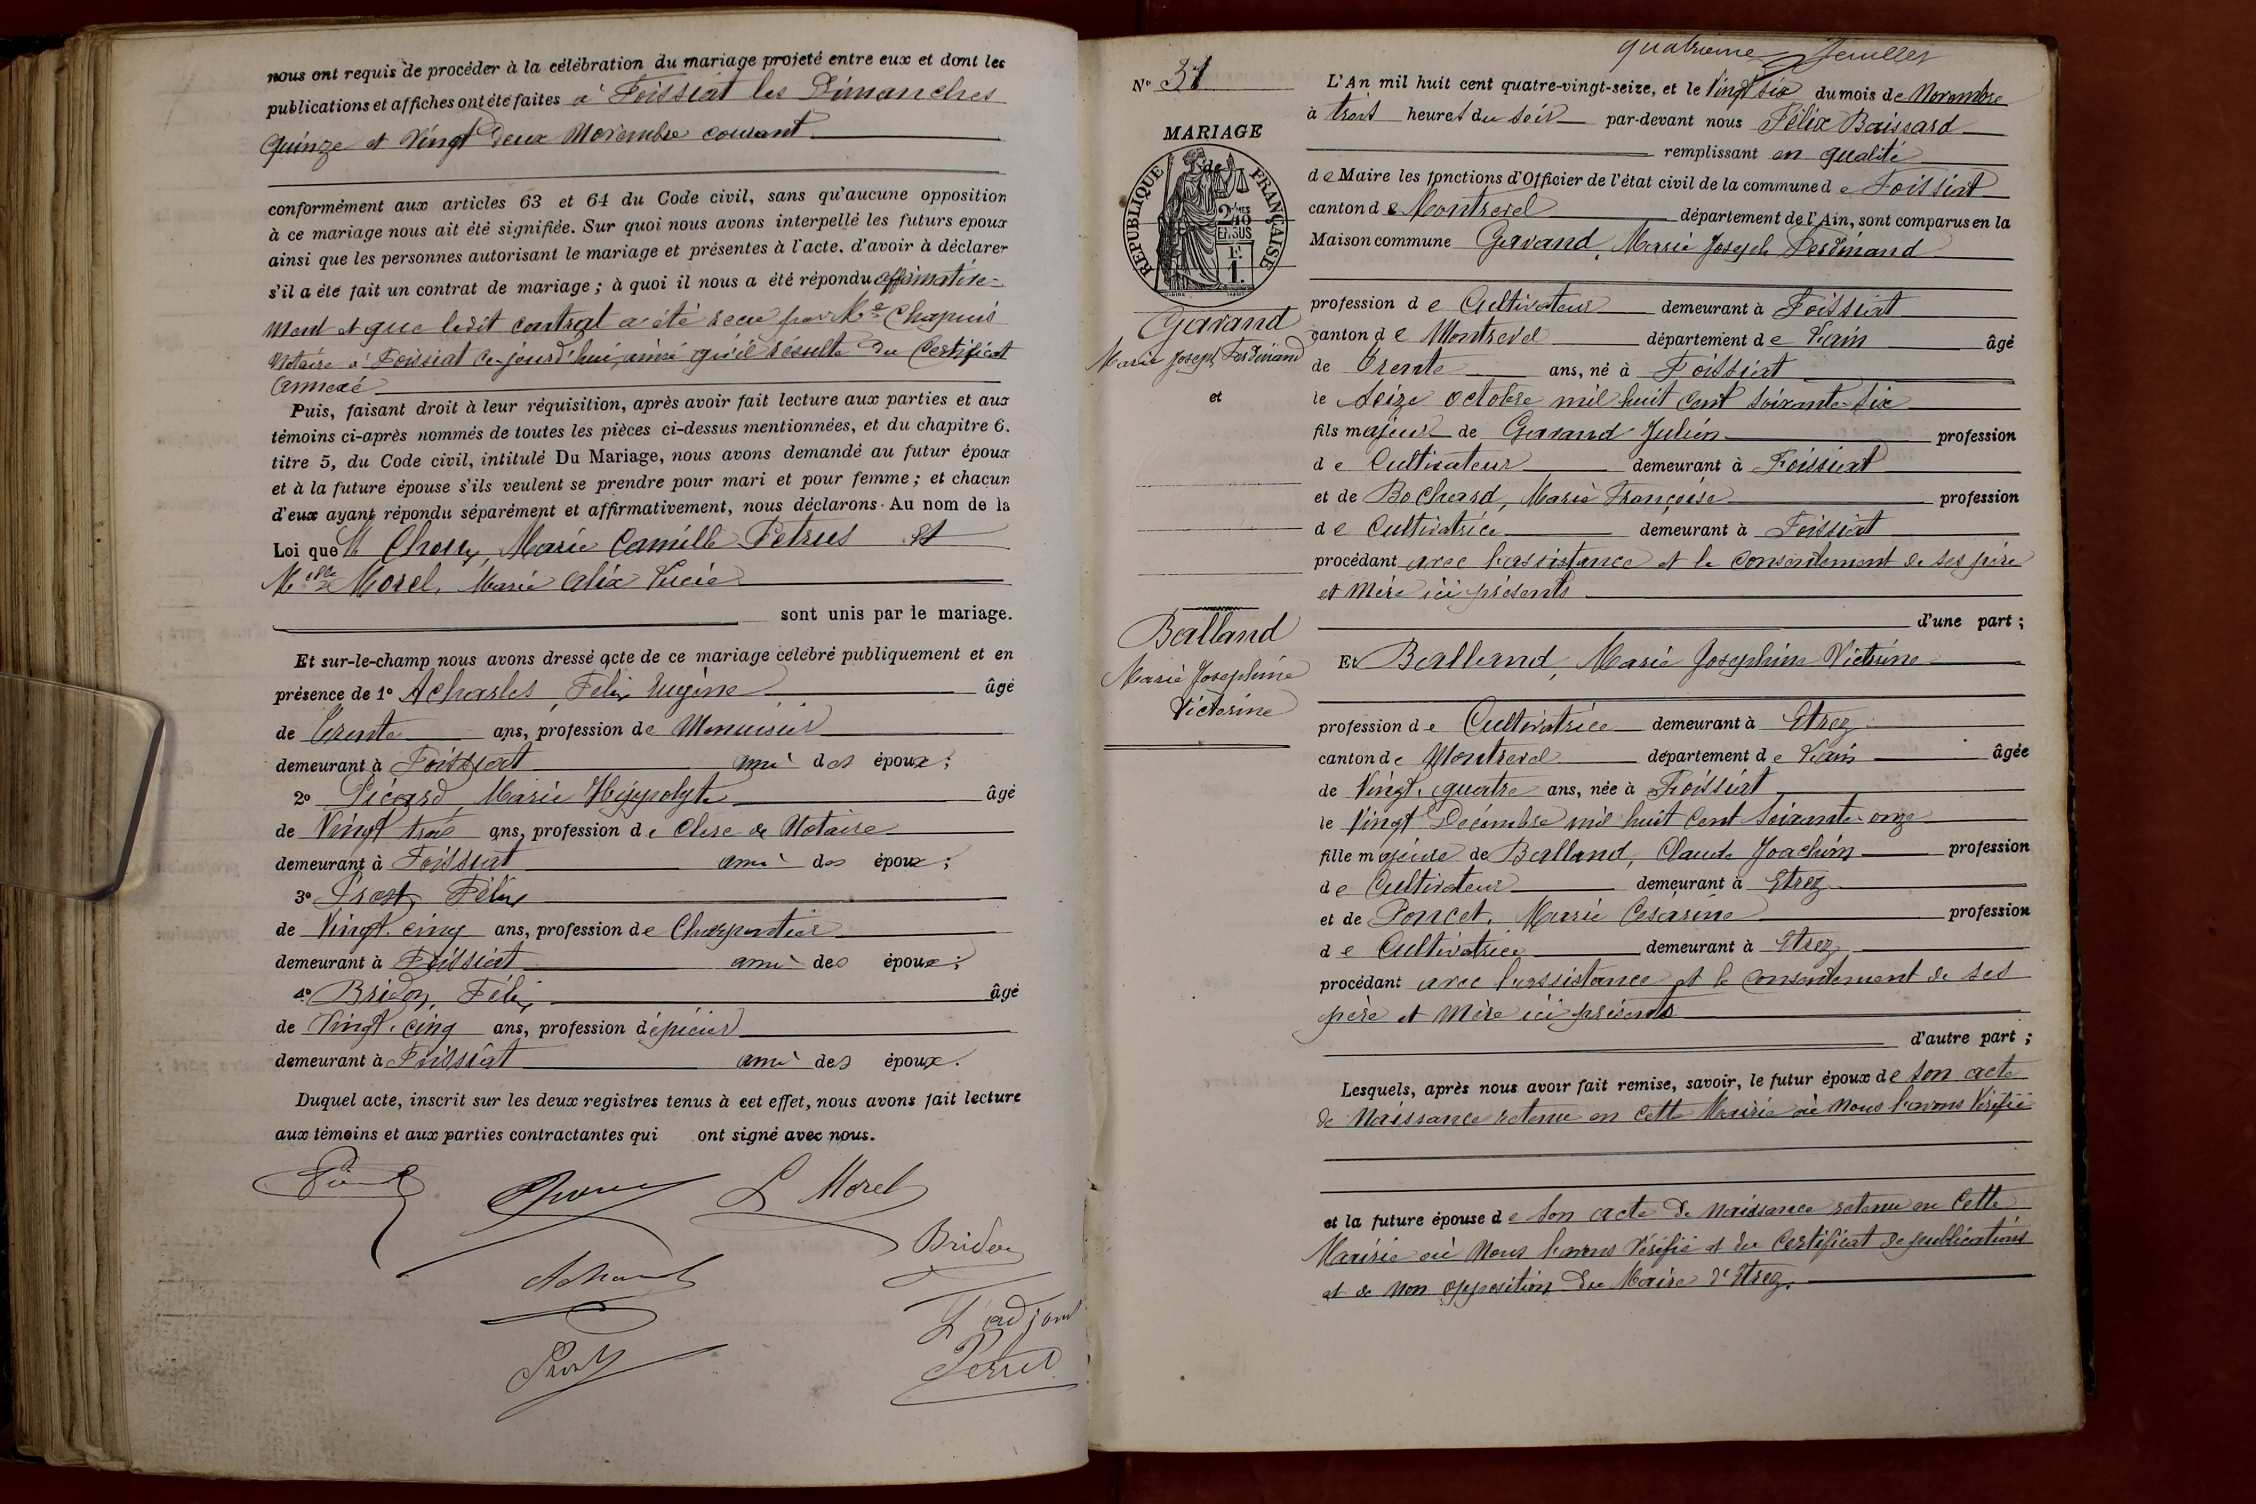 nous ont requis de procéder à la célébration du mariage projeté entre eux et dont les
publications et affiches ont été faites à Foissiat les Dimanches
quinze et vingt deux Novembre courant
conformément aux articles 63 et 64 du Code civil, sans qu'aucune opposition
à ce mariage nous ait été signifiée. Sur quoi nous avons interpellé les futurs epoux
ainsi que les personnes autorisant le mariage et présentes à l'acte, d'avoir à déclarer
s'il a été fait un contrat de mariage ; à quoi il nous a été répondu affirmative-
ment et que ledit contrat a été recu par Me Chapuis
Notaire à Foissiat ce-jourd'hui, ainsi qu'il résulte du Certificat
annexé
Puis, faisant droit à leur réquisition, après avoir fait lecture aux parties et aux
témoins ci-après nommés de toutes les pièces ci-dessus mentionnées, et du chapitre 6.
titre 5, du Code civil, intitulé Du Mariage, nous avons demandé au futur époux
et à la future épouse s'ils veulent se prendre pour mari et pour femme ; et chacun
d'eux ayant répondu séparément et affirmativement, nous déclarons. Au nom de la
Loi que M. Marie Camille Petrus et
Melle Morel, Marie Alix Lucie
sont unis par le mariage.
Et sur-le-champ nous avons dressé acte de ce mariage célébré publiquement et en
présence de 1° Acharles, Félix Eugène âgé
de trente ans, profession de Menuisier
demeurant à Foissiat ami des époux ;
2° Picard, Marie Hippolyte âgé
de Vingt trois ans, profession de Clerc de Notaire
demeurant à Foissiat ami des époux ;
3° Prost, Félix
de Vingt-cinq ans, profession de Charpentier
demeurant à Foissiat ami des époux ;
4° Bridon, Félix âgé
de Vingt-cinq ans, profession d'épicier
demeurant à Foissiat ami des époux.
Duquel acte, inscrit sur les deux registres tenus à cet effet, nous avons fait lecture
aux témoins et aux parties contractantes qui ont signé avec nous.
L Morel
Bridon
L'adjoint
Perret
quatrième feuillet
N° 31
MARIAGE
RÉPUBLIQUE FRANÇAISE
2/10 EN SUS
1 F.
Gavand
Marie Joseph Ferdinand
et
Balland
Marie Josephine
Victorine
L'An mil huit cent quatre-vingt-seize, et le Vingt six du mois de Novembre
à trois heures du soir par-devant nous Félix Boissard
remplissant en qualité
de Maire les fonctions d'Officier de l'état civil de la commune de Foissiat
canton de Montrevel département de l'Ain, sont comparus en la
Maison commune Gavand, Marie Joseph Ferdinand
profession de Cultivateur demeurant à Foissiat
canton de Montrevel département de l'ain âgé
de trente ans, né à Foissiat
le seize octobre mil huit cent soixante-six
fils majeur de Gavand Julien profession
de Cultivateur demeurant à Foissiat
et de Bochard, Marie Françoise profession
de Cultivatrice demeurant à Foissiat
procédant avec l'assistance et le consentement de ses père
et mère ici présents
d'une part ;
Et Balland, Marie Josephine Victorine
profession de Cultivatrice demeurant à Etrez
canton de Montrevel département de l'ain âgée
de Vingt-quatre ans, née à Foissiat
le Vingt Décembre mil huit cent soixante-onze
fille majeure de Balland, Claude Joachim profession
de Cultivateur demeurant à Etrez
et de Poncet, Marie Césarine profession
de Cultivatrice demeurant à Etrez
procédant avec l'assistance et le consentement de ses
père et mère ici présents
d'autre part ;
Lesquels, après nous avoir fait remise, savoir, le futur époux de son acte
de Naissance retenu en cette Mairie où nous l'avons vérifié
et la future épouse de son acte de naissance retenu en cette
Mairie où nous l'avons vérifié et du certificat de publications
et de non opposition du Maire d'Etrez.